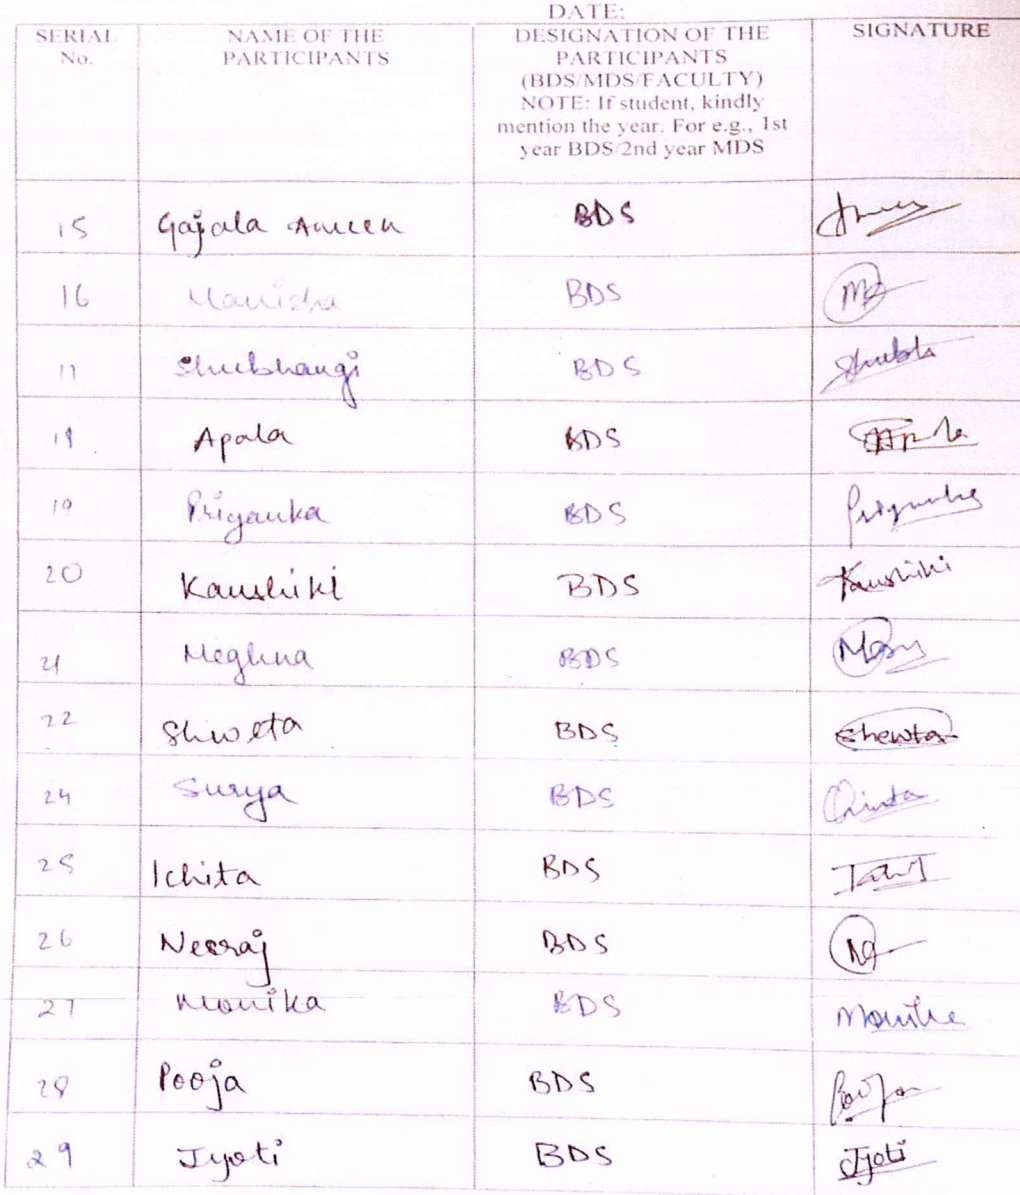 DATE:
SERIAL No. NAME OF THE PARTICIPANTS DESIGNATION OF THE PARTICIPANTS (BDS/MDS/FACULTY) NOTE: If student, kindly mention the year. For e.g., 1st year BDS/2nd year MDS SIGNATURE
15 Gajala Ameen BDS
16 Manisha BDS
17 Shubhangi BDS Shubh
18 Apala BDS
19 Priyanka BDS Priyanka
20 Kaushiki BDS Kaushiki
21 Meghna BDS
22 Shweta BDS Shewta
24 Surya BDS
25 Ichita BDS
26 Neeraj BDS
27 Monika BDS Monika
28 Pooja BDS Pooja
29 Jyoti BDS Jyoti